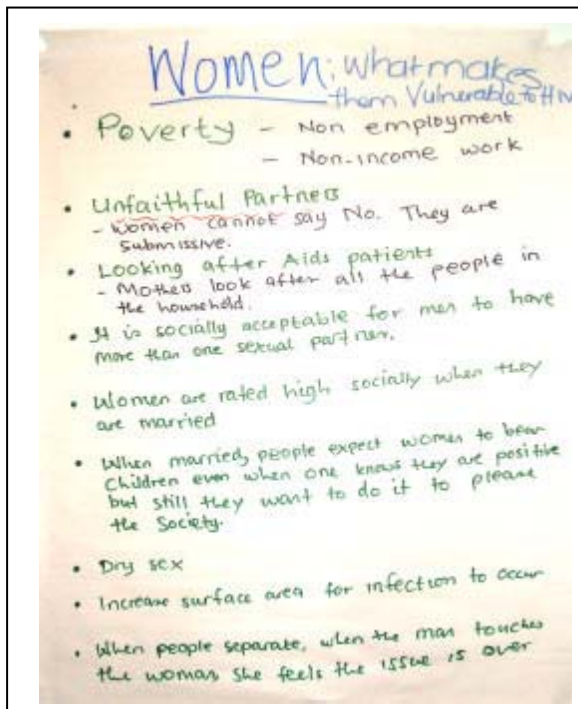 Women: What makes
them Vulnerable to HIV
• Poverty - Non employment
- Non-income work
• Unfaithful Partners
- Women cannot say No. They are
submissive.
• Looking after Aids patients
- Mothers look after all the people in
the household.
• It is socially acceptable for men to have
more than one sexual partner.
• Women are rated high socially when they
are married
• When married, people expect women to bear
Children even when one knows they are positive
but still they want to do it to please
the Society.
• Dry sex
• Increase surface area for infection to occur
• When people separate, when the man touches
the woman she feels the issue is over